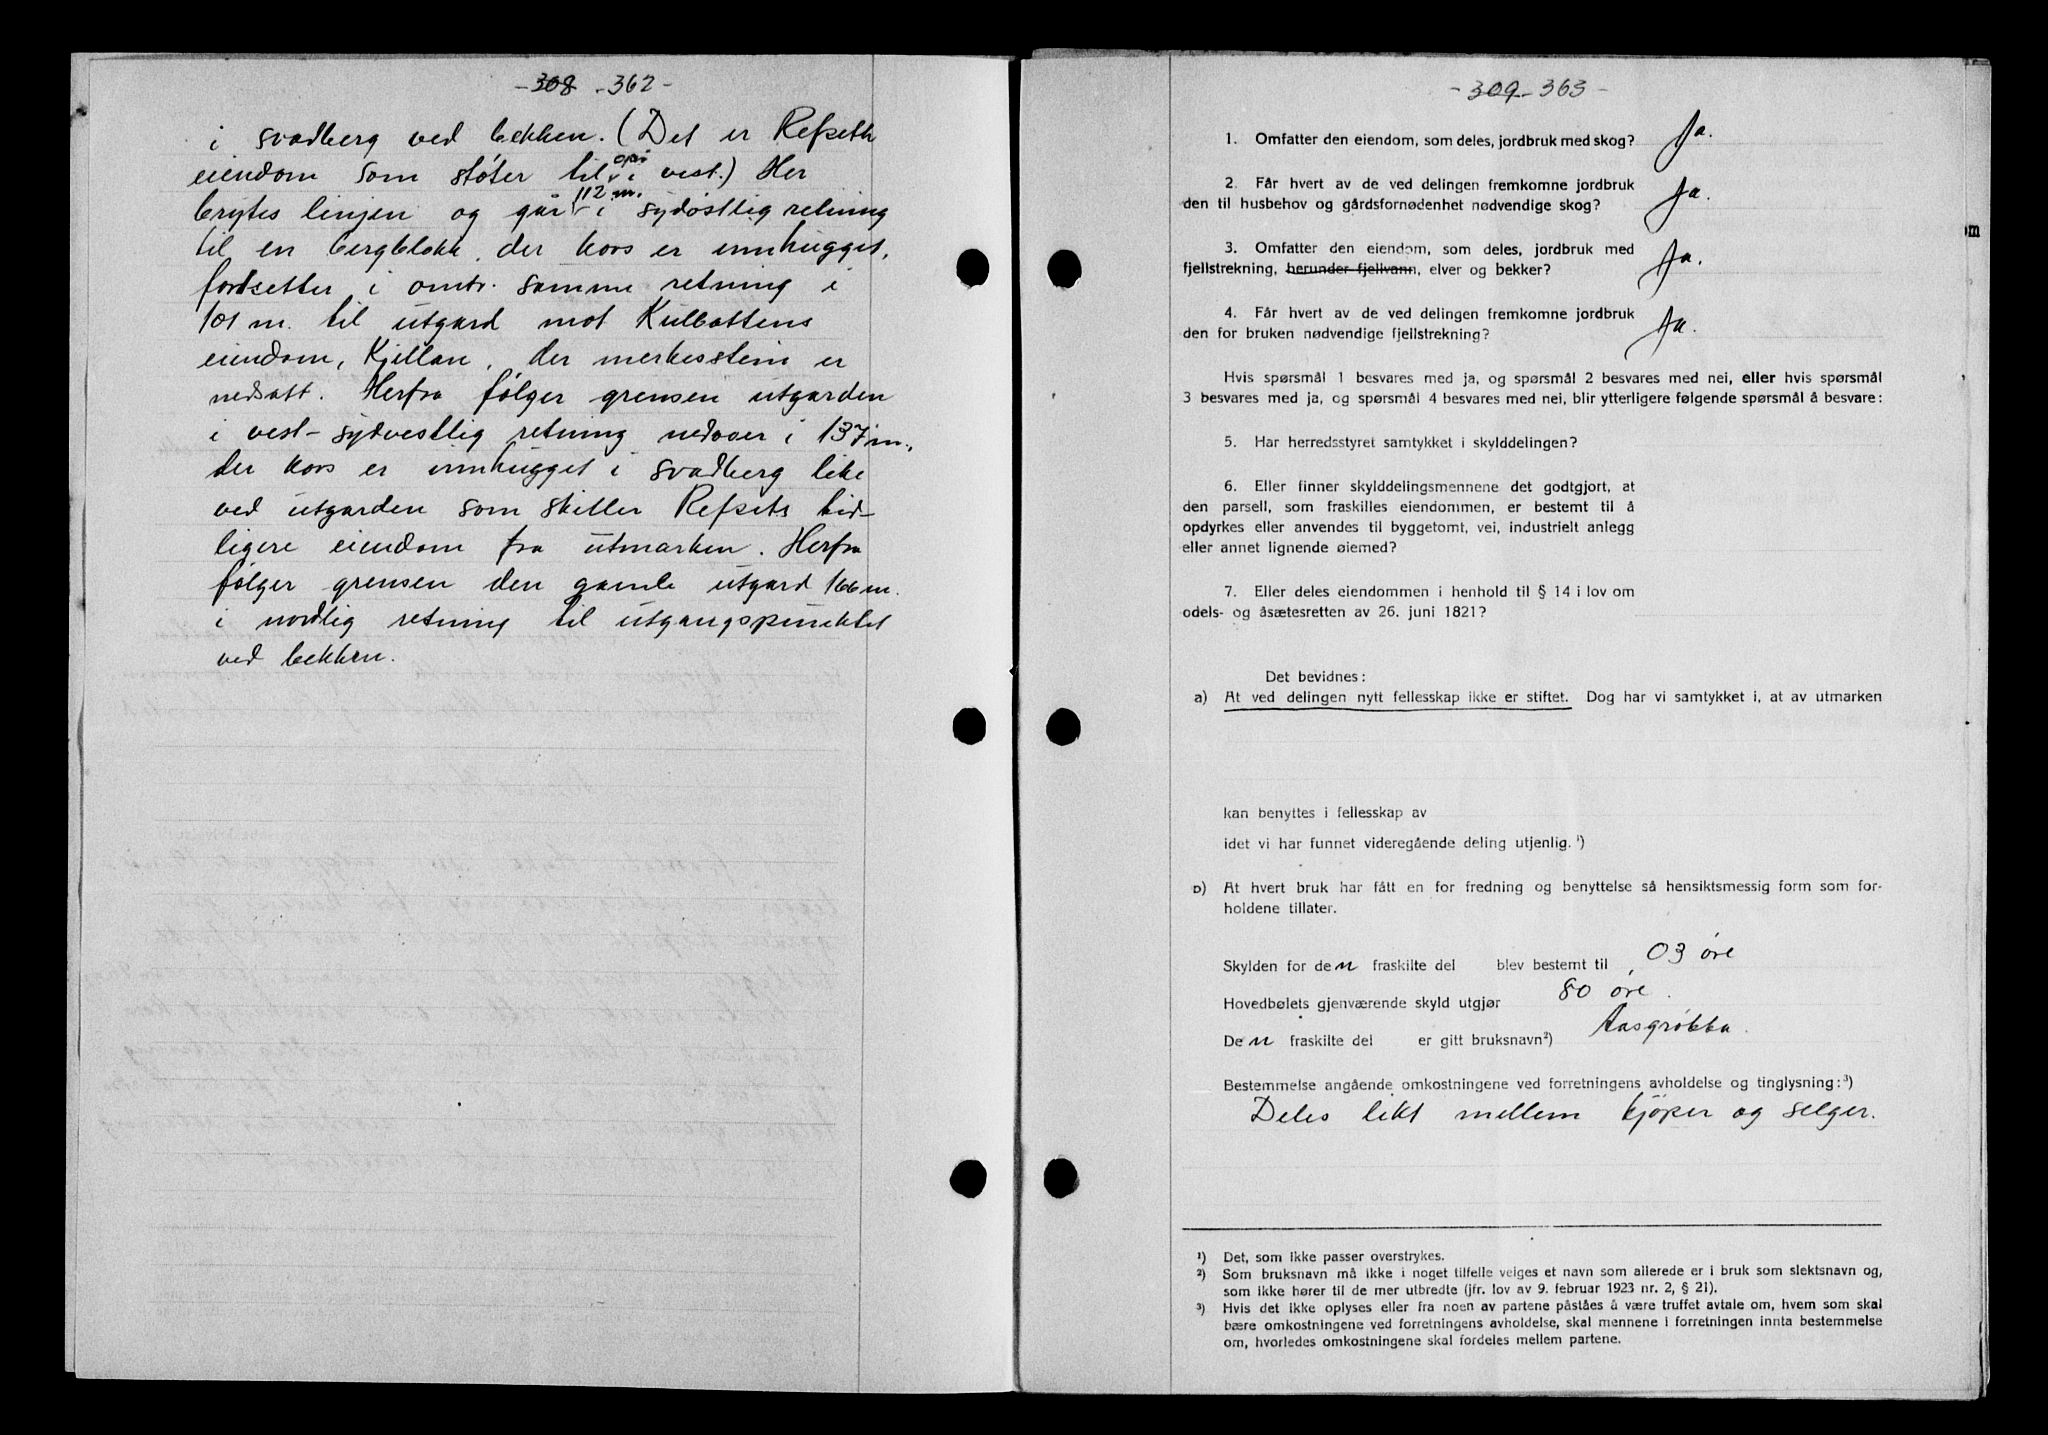 -308- -362-
i svadberg ved bekken. (Det er Refseth
eiendom som støter til opi i vest.) Her
brytes linjen og går 112 m. i sydøstlig retning
til en bergblokk, der kors er innhugget,
fortsetter i omtr. samme retning i
101 m. til utgard mot Kulbottens
eiendom, Kjellan, der merkesstein er
nedsatt. Herfra følger grensen utgarden
i vest-sydvestlig retning nedover i 137 m.,
der kors er innhugget i svadberg like
ved utgarden som skiller Refsets tid-
ligere eiendom fra utmarken. Herfra
følger grensen den gamle utgard 166 m.
i nordlig retning til utgangspunktet
ved bekken.
-309- 363-
1. Omfatter den eiendom, som deles, jordbruk med skog? Ja.
2. Får hvert av de ved delingen fremkomne jordbruk
den til husbehov og gårdsfornødenhet nødvendige skog? Ja.
3. Omfatter den eiendom, som deles, jordbruk med
fjellstrekning, herunder fjellvann, elver og bekker? Ja.
4. Får hvert av de ved delingen fremkomne jordbruk
den for bruken nødvendige fjellstrekning? Ja.
Hvis spørsmål 1 besvares med ja, og spørsmål 2 besvares med nei, eller hvis spørsmål
3 besvares med ja, og spørsmål 4 besvares med nei, blir ytterligere følgende spørsmål å besvare:
5. Har herredsstyret samtykket i skylddelingen?
6. Eller finner skylddelingsmennene det godtgjort, at
den parsell, som fraskilles eiendommen, er bestemt til å
opdyrkes eller anvendes til byggetomt, vei, industrielt anlegg
eller annet lignende øiemed?
7. Eller deles eiendommen i henhold til § 14 i lov om
odels- og åsætesretten av 26. juni 1821?
Det bevidnes:
a) At ved delingen nytt fellesskap ikke er stiftet. Dog har vi samtykket i, at av utmarken
kan benyttes i fellesskap av
idet vi har funnet videregående deling utjenlig.¹)
b) At hvert bruk har fått en for fredning og benyttelse så hensiktsmessig form som for-
holdene tillater.
Skylden for den fraskilte del blev bestemt til 03 øre
Hovedbølets gjenværende skyld utgjør 80 øre.
Den fraskilte del er gitt bruksnavn²) Aasgrøbba.
Bestemmelse angående omkostningene ved forretningens avholdelse og tinglysning:³)
Deles likt mellem kjøper og selger.
¹) Det, som ikke passer overstrykes.
²) Som bruksnavn må ikke i noget tilfelle velges et navn som allerede er i bruk som slektsnavn og,
som ikke hører til de mer utbredte (jfr. lov av 9. februar 1923 nr. 2, § 21).
³) Hvis det ikke oplyses eller fra noen av partene påståes å være truffet avtale om, hvem som skal
bære omkostningene ved forretningens avholdelse, skal mennene i forretningen innta bestemmelse
om, hvorledes omkostningene skal fordeles mellem partene.
om